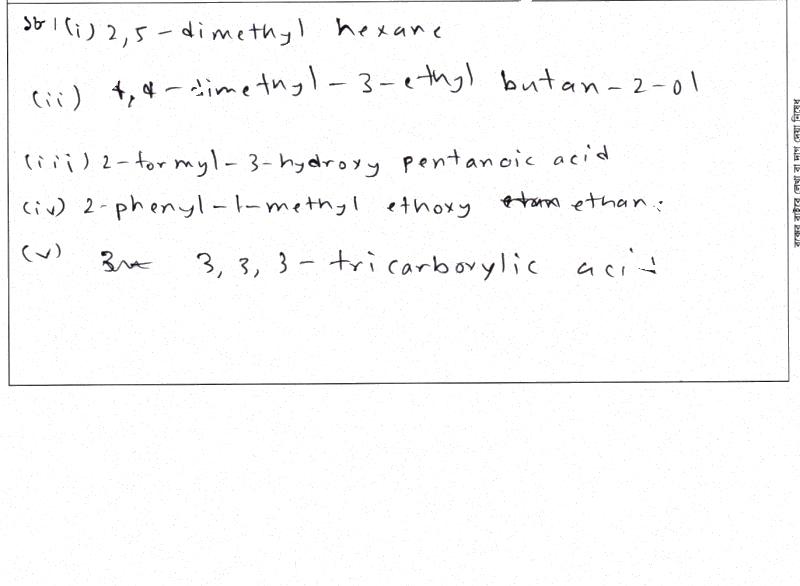 ১৮।(i) 2,5-dimethyl hexane
(ii) 4,4-dimethyl-3-ethyl butan-2-ol
(iii) 2-formyl-3-hydroxy pentanoic acid
(iv) 2-phenyl-1-methyl ethoxy ethan:
(v) 3,3,3-tricarboxylic acid
বক্সের বাইরে লেখা বা দাগ দেয়া নিষেধ